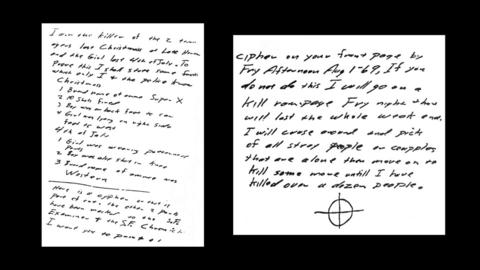 I am the killer of the 2 teen
agers last Christmas at Lake Herman
and the Girl last 4th of July. To
Prove this I shall state some facts
which only I + the police know
Christmas
1 Brand name of ammo Super X
2 10 Shots fired
3 Boy was on back feet to car
4 Girl was lyeing on right side
feet to west
4th of July
1 Girl was wearing patterned
Pants
2 Boy was also shot in knee
3 Brand name of ammo was
Western
Here is a cipher or that is
part of one. the other 2 parts
have been mailed to the S.F.
Examiner + the S.F. Chronicle
I want you to print
cipher on your front page by
Fry Afternoon Aug 1-69, If you
do not do this I will go on a
kill rampage Fry night that
will last the whole week end.
I will cruse around and pick
of all stray people or coupples
that are alone then move on to
kill some more untill I have
killed over a dozen people.